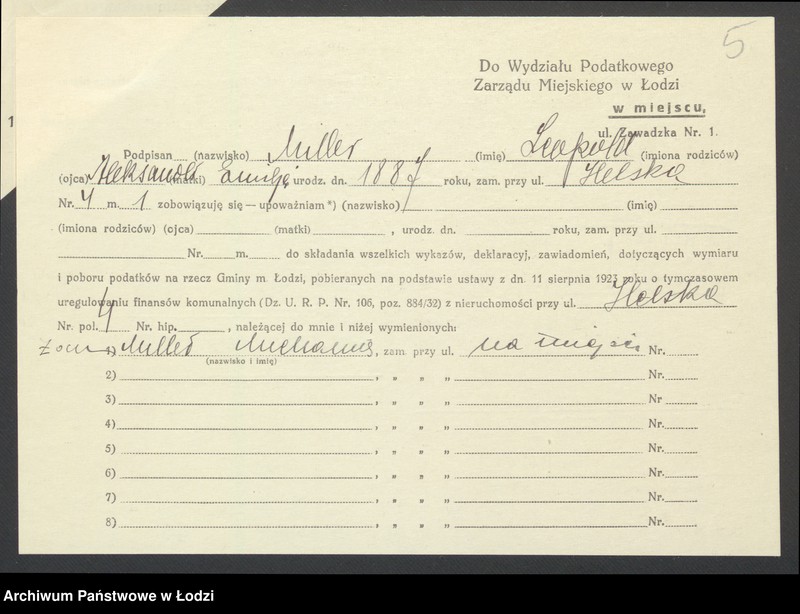 5
Do Wydziału Podatkowego
Zarządu Miejskiego w Łodzi
w miejscu,
ul. Zawadzka Nr. 1.
1
Podpisan (nazwisko) Miller (imię) Leopold (imiona rodziców)
(ojca) Aleksander (matki) Emilja urodz. dn. 1887 roku, zam. przy ul. Helska
Nr. 4 m. 1 zobowiązuję się — upoważniam *) (nazwisko) (imię)
(imiona rodziców) (ojca) (matki) , urodz. dn. roku, zam. przy ul.
Nr. m. do składania wszelkich wykazów, deklaracyj, zawiadomień, dotyczących wymiaru
i poboru podatków na rzecz Gminy m. Łodzi, pobieranych na podstawie ustawy z dn. 11 sierpnia 1923 roku o tymczasowem
uregulowaniu finansów komunalnych (Dz. U. R. P. Nr. 106, poz. 884/32) z nieruchomości przy ul. Helska
Nr. pol. 4 Nr. hip. , należącej do mnie i niżej wymienionych:
żona 1) Miller , zam. przy ul. na miejscu Nr.
(nazwisko i imię)
2) , „ „ „ Nr.
3) , „ „ „ Nr
4) , „ „ „ Nr.
5) , „ „ „ Nr.
6) , „ „ „ Nr
7) , „ „ „ Nr.
8) , „ „ „ Nr.
Archiwum Państwowe w Łodzi